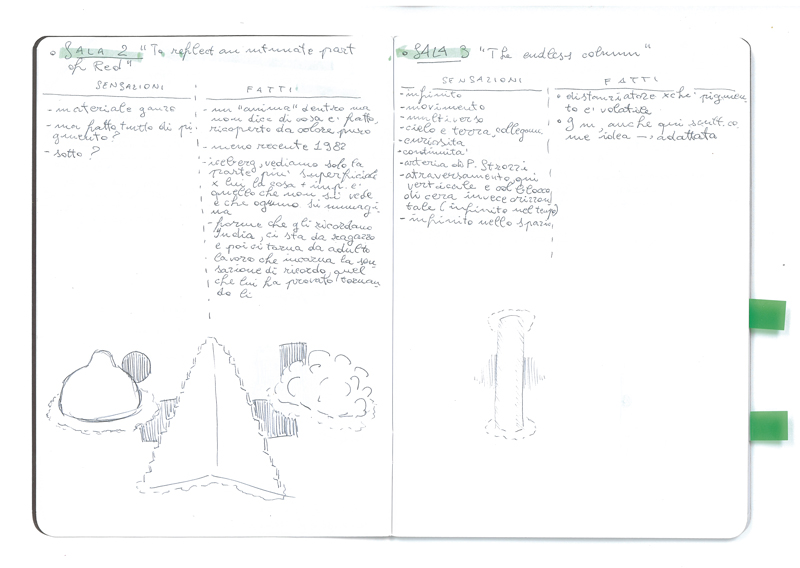 SALA 2 "To reflect an intimate part
of Red"
SENSAZIONI
- materiale ganzo
- ma fatto tutto di pi-
gmento?
- sotto?
FATTI
- ha "anima" dentro ma
non dice di cosa è fatto,
ricoperto da colore puro
- meno recente 1982
- iceberg, vediamo solo la
parte più superficiale
x lui la cosa + imp. è
quello che non si vede
e che ognuno si immagi
na
- forme che gli ricordano
India, ci sta da ragazzo
e poi ci torna da adulto
lavoro che incarna la sen
sazione di ricordo, quel
che lui ha provato tornan
do lì
SALA 3 "The endless column"
SENSAZIONI
- infinito
- movimento
- multiverso
- cielo e terra, collegam.
- curiosità
- continuità
- arteria di P. Strozzi
- attraversamento, qui
verticale e col blocco
di cera invece orizzon
tale (infinito nel tempo)
- infinito nello spazio
FATTI
distanziatore xché pigmen
to è volatile
9 m, anche qui scult. co
me idea → adattata